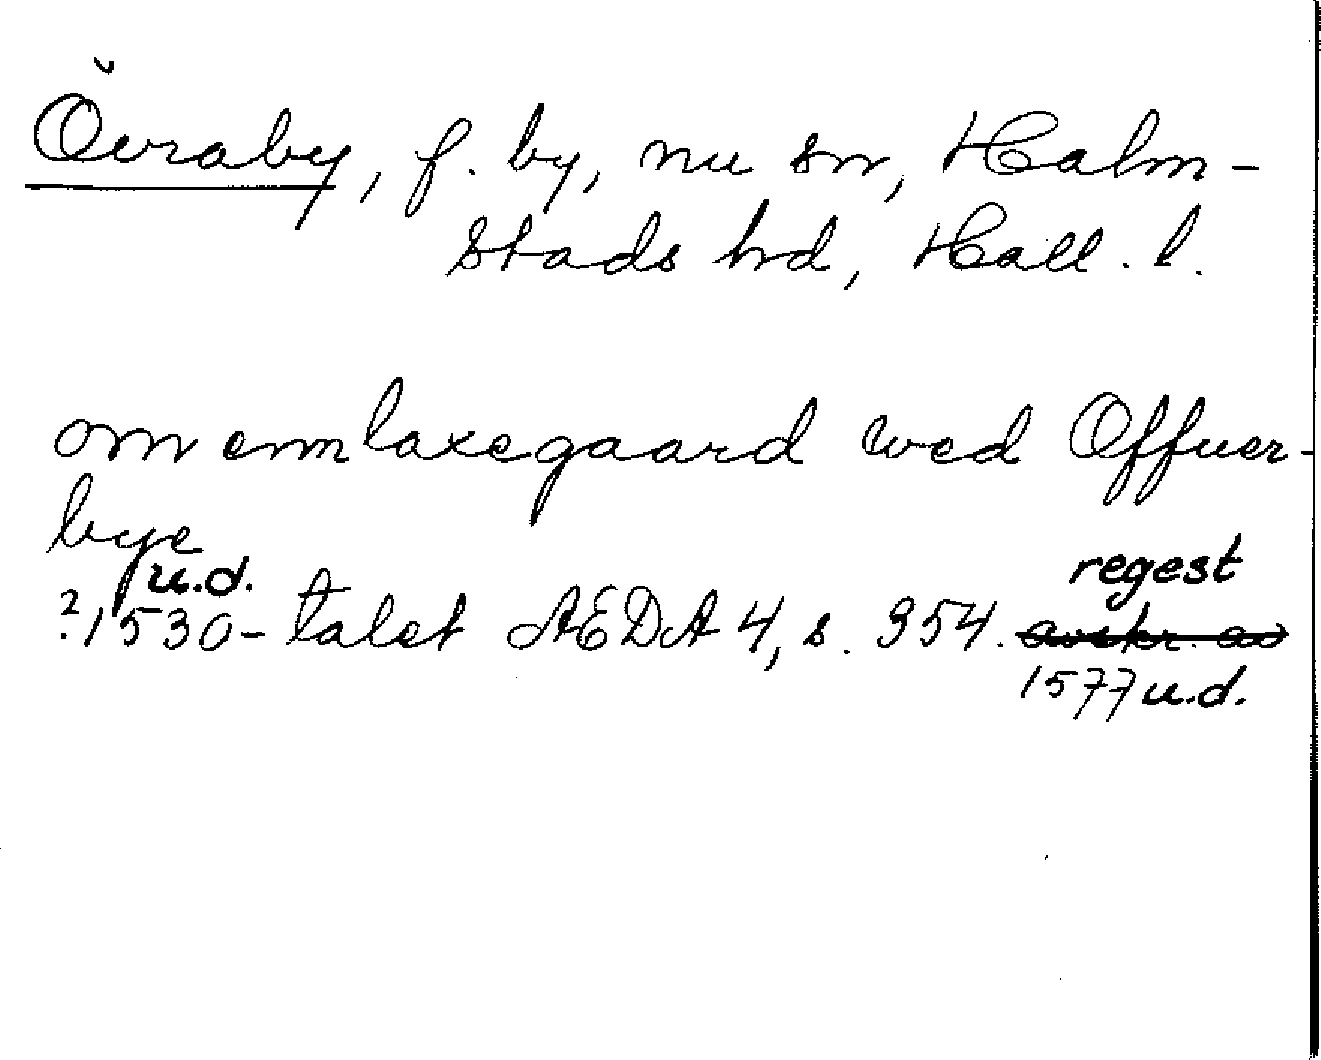 Övraby, f. by, nu sn, Halm-
stads hd, Hall. l.
om enn laxegaard wed Offuer-
bye
u.d. regest
?1530-talet AEDA 4, s. 354. avskr. av
1577 u.d.